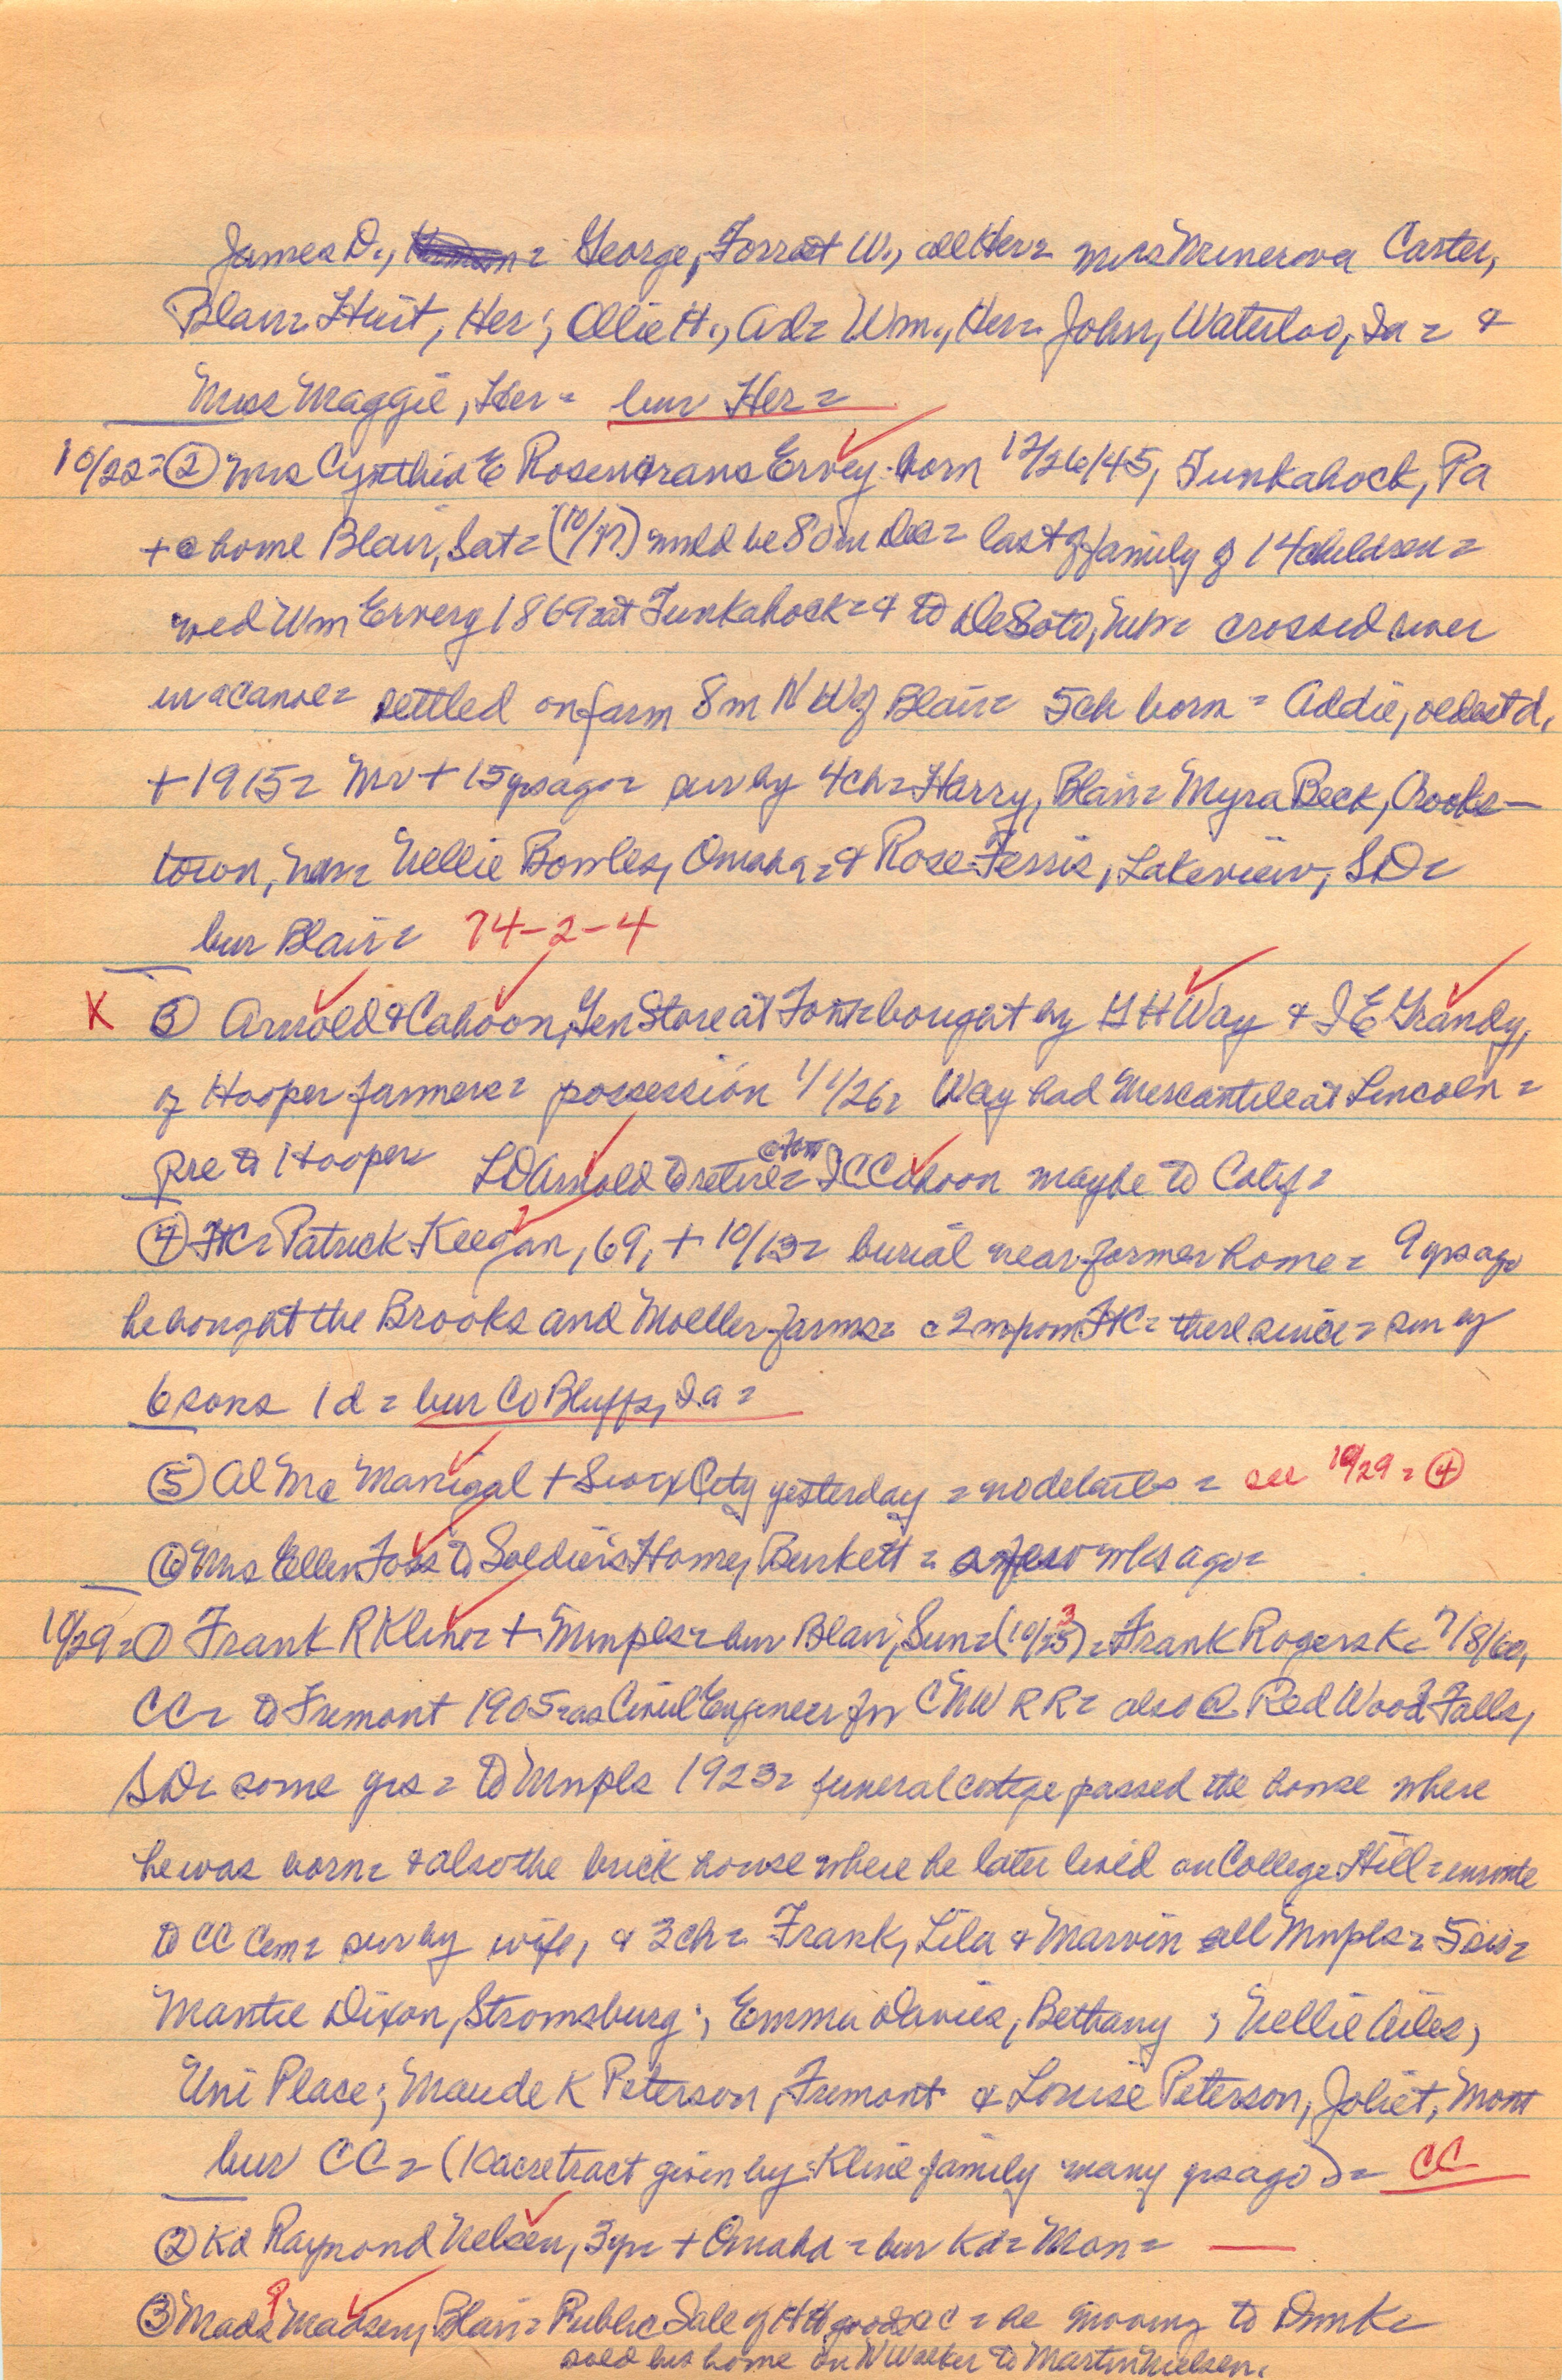 James D., George, Forrest W., all Her= Mrs Minerova Carter,
Blair= Huit, Her; Ollie H., Arl= Wm., Her= John, Waterloo, Ia= &
Miss Maggie, Her= bur Her=
10/22= ② Mrs Cynthia E Rosencrans Ervey born 12/26/45, Tunkahock, Pa
+ @ home Blair, Sat= (10/17) would be 80 in Dec= last of family of 14 children=
wed Wm Ervery 1869 at Tunkahock= & to DeSoto, Neb= crossed river
in a canoe= settled on farm 8 m N W of Blair= 5 ch born= Addie, oldest d,
+ 1915= Mr + 15 yrs ago= sur by 4 ch= Harry, Blair= Myra Beck, Crooks-
town, Neb= Nellie Bowles, Omaha= & Rose Ferris, Lakeview, SD=
bur Blair= 74-2-4
K ③ Arnold & Cahoon, Gen Store at Font= bought by G H Way & J E Grandy,
of Hooper farmers= possession 1/1/26= Way had Mercantile at Lincoln=
pre to Hooper L D Arnold to retire= @ Font J C Cahoon maybe to Calif=
④ FtC= Patrick Keegan, 69, + 10/13= burial near former home= 9 yrs ago
he bought the Brooks and Moeller farms= c 2 m from FtC= there since= sur by
6 sons 1 d= bur Co Bluffs, Ia=
⑤ Al Mc Manigal + Sioux City yesterday= no details= see 10/29= ④
⑥ Mrs Ellen Foss to Soldier's Home, Burkett= a few wks ago=
10/29= ① Frank R Kline= + Mnpls= bur Blair, Sun= (10/25) 3= Frank Rogers K= 7/8/60,
CC= to Fremont 1905= as Civil Engineer for CNW RR= also @ Red Wood Falls,
SD= some yrs= to Mnpls 1923= funeral cortege passed the house where
he was born= & also the brick house where he later lived on College Hill= enroute
to CC Cem= sur by wife, & 3 ch= Frank, Lila & Marvin all Mnpls= 5 sis=
Mantie Dixon, Stromsburg; Emma Davies, Bethany; Nellie Ailes,
Uni Place; Maude K Peterson, Fremont & Louise Peterson, Joliet, Mont
bur CC= (10 acre tract given by Kline family many yrs ago)= CC
② Kd Raymond Nelsen, 3 yr= + Omaha= bur Kd= Mon=
③ Mads P Madsen, Blair= Public Sale of HH goods &C= he moving to Dmk=
sold his home on N Walker to Martin Nielsen.